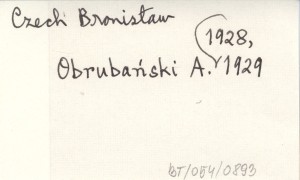 Czech Bronisław
1928,
Obrubański A. 1929
BT/054/0893